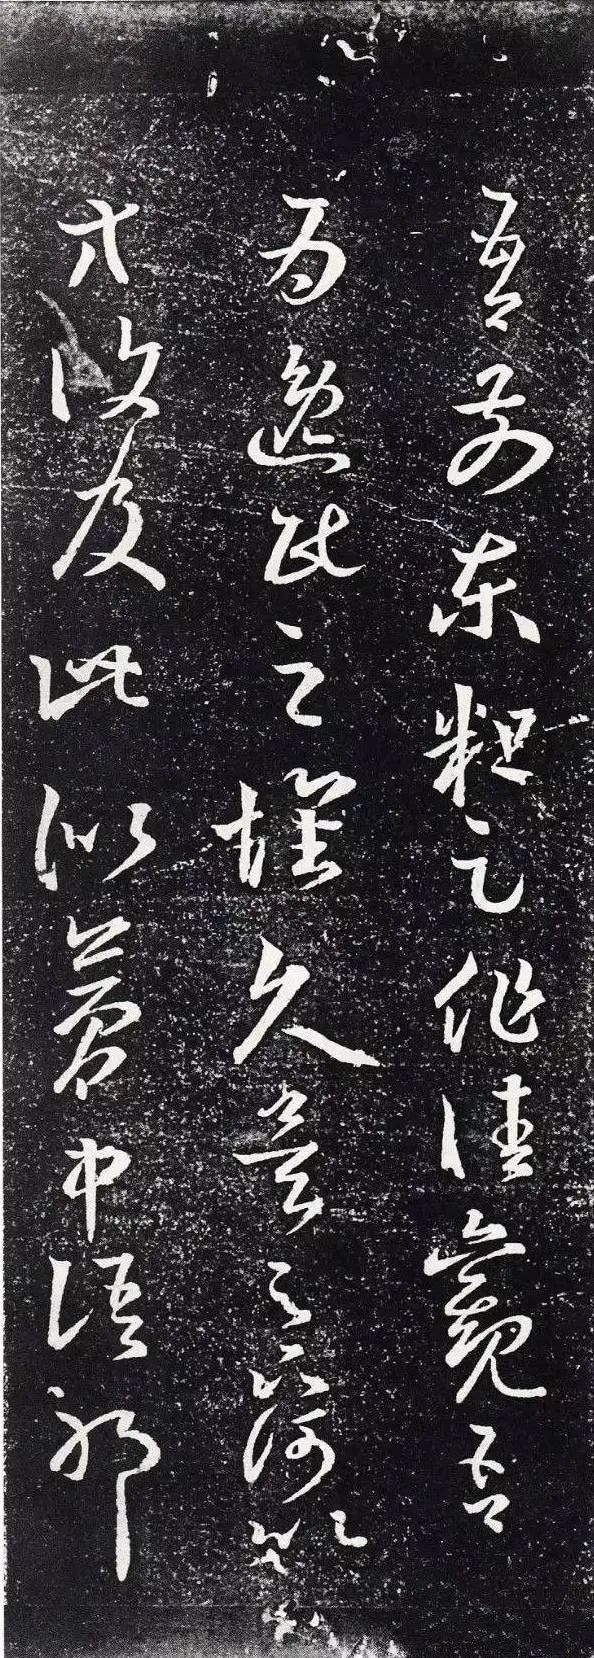 吾前東粗足作佳觀吾
為逸民之懷久矣足下何以
方復及此似夢中語耶